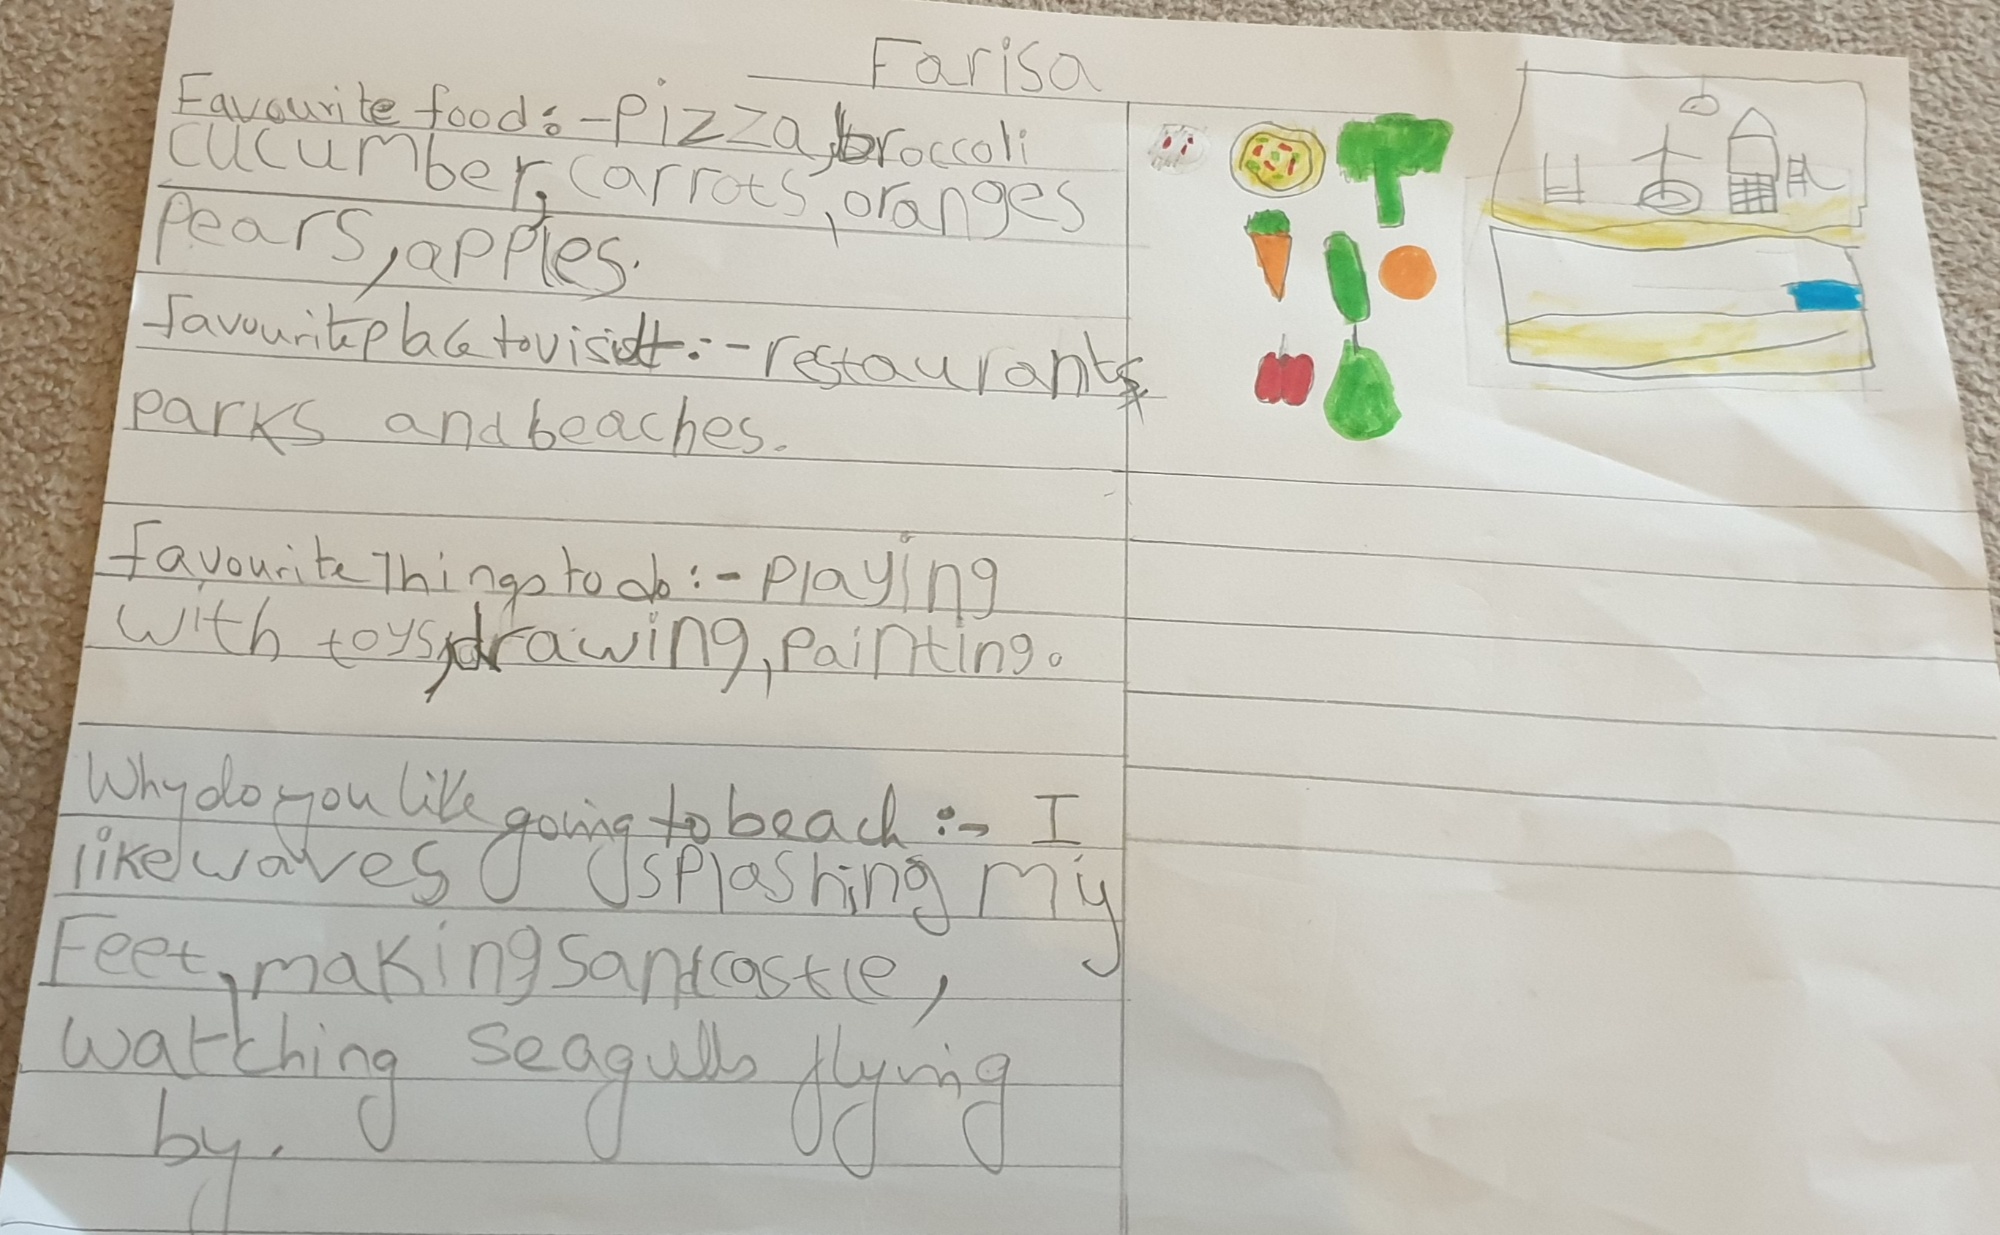 Farisa
Favourite food:- Pizza, broccoli
cucumber, carrots, oranges
pears, apples.
favourite place to visit:- restaurants,
parks and beaches.
favourite Things to do:- playing
with toys, drawing, painting.
Why do you like going to beach:- I
like waves splashing my
Feet, making santcastle,
watching seagulls flying
by.